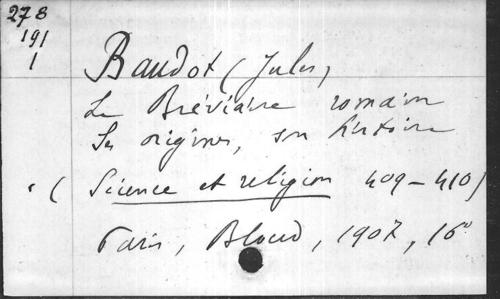 273
191
1
Baudot (Jules)
Le Bréviaire romain
Ses origines, son histoire
(Science et religion 409-410)
Paris, Bloud, 1907, 16°